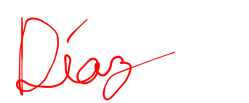 Díaz